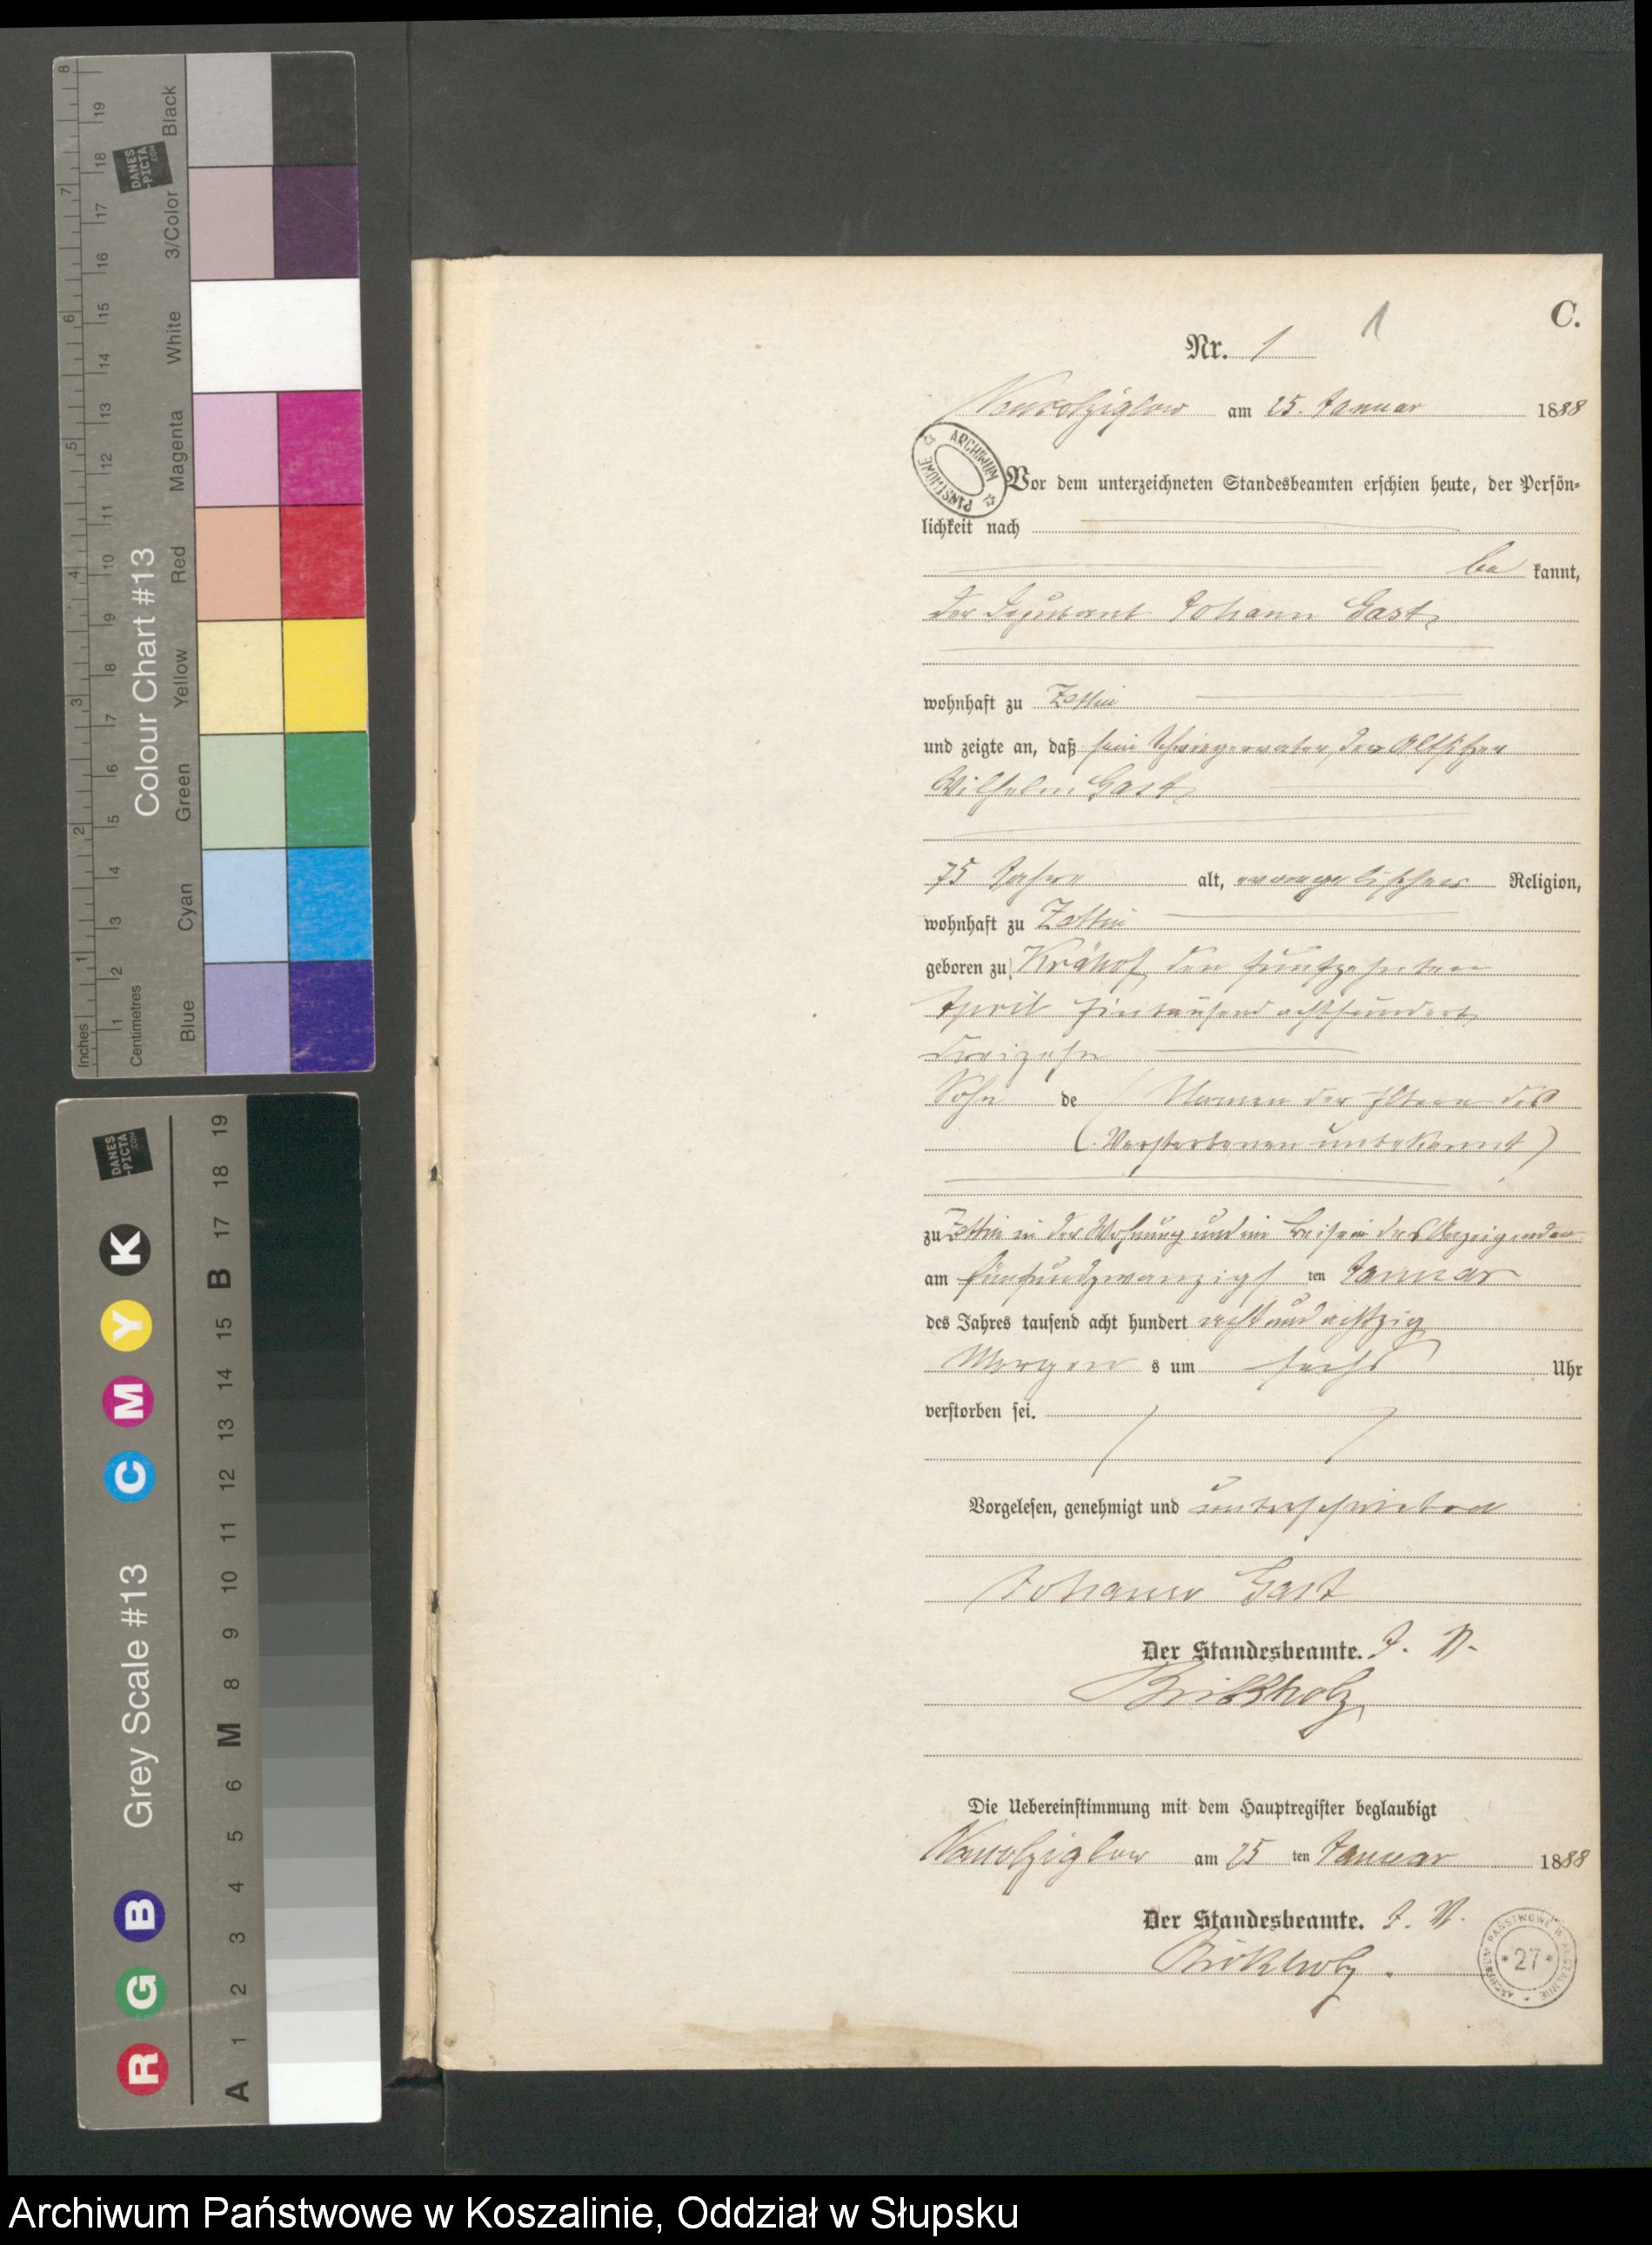 C.
1
Nr. 1
am 25. Januar 1888
ARCHIWUM PAŃSTWOWE
Vor dem unterzeichneten Standesbeamten erschien heute, der Persön-
lichkeit nach
be kannt,
der Deputant Johann Gast,
wohnhaft zu Zettin
und zeigte an, daß sein Schwiegervater, der Altsitzer
Wilhelm Gast,
75 Jahre alt, evangelischer Religion,
wohnhaft zu Zettin
geboren zu Krähof, den fünfzehnten
April Eintausend achthundert
dreizehn
Sohn de ( Namen der Eltern des
(Verstorbenen unbekannt)
zu Zettin in der Wohnung und im Beisein des Anzeigenden
am fünfundzwanzigs ten Januar
des Jahres tausend acht hundert acht und achtzig
Morgen s um sechs Uhr
verstorben sei.
Vorgelesen, genehmigt und unterschrieben
Johann Gast
Der Standesbeamte. J. V.
Birkholz
Die Uebereinstimmung mit dem Hauptregister beglaubigt
am 25 ten Januar 1888
Der Standesbeamte. J. V.
Birkholz.
ARCHIWUM PAŃSTWOWE W KOSZALINIE
* 27 *
Colour Chart #13
Blue Cyan Green Yellow Red Magenta White 3/Color Black
Inches 1 2 3 4 5 6 7 8
Centimetres 1 2 3 4 5 6 7 8 9 10 11 12 13 14 15 16 17 18 19
DANES
-PICTA
.COM
Grey Scale #13
R G B C M Y K
A 1 2 3 4 5 6 M 8 9 10 11 12 13 14 15 B 17 18 19
DANES
-PICTA
.COM
Archiwum Państwowe w Koszalinie, Oddział w Słupsku